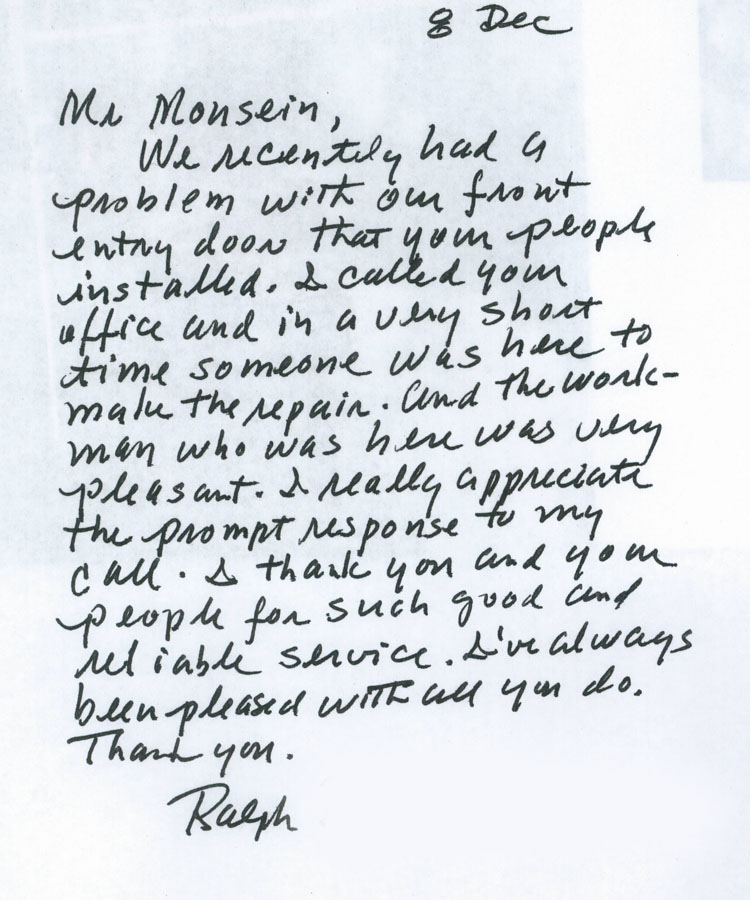 8 Dec
Mr Monsein,
We recently had a
problem with our front
entry door that your people
installed. I called your
office and in a very short
time someone was here to
make the repair. And the work-
man who was here was very
pleasant. I really appreciate
the prompt response to my
call. I thank you and your
people for such good and
reliable service. I've always
been pleased with all you do.
Thank you.
Ralph